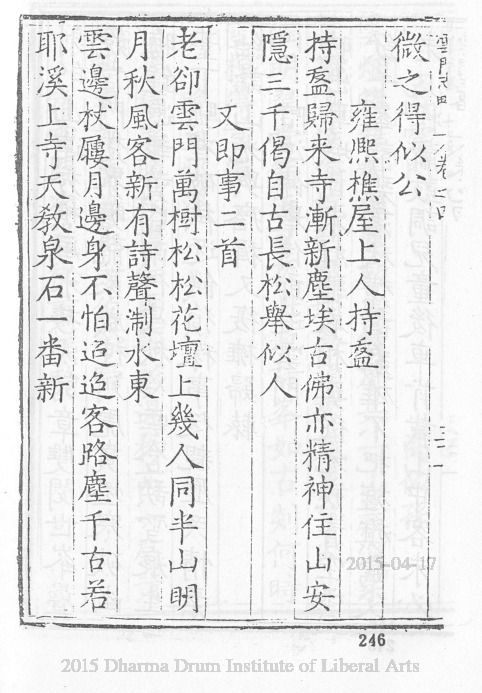 微之得似公
雍熈樵屋上人持盋
持盋歸来寺漸新塵埃古佛亦精神住山安
隱三千偈自古長松舉似人
又即事二首
老卻雲門萬樹松松花壇上幾人同半山眀
月秋風客新有詩聲淛水東
雲邊杖屨月邊身不怕迢迢客路塵千古若
耶溪上寺天教泉石一番新
2015-04-17
246
2015 Dharma Drum Institute of Liberal Arts